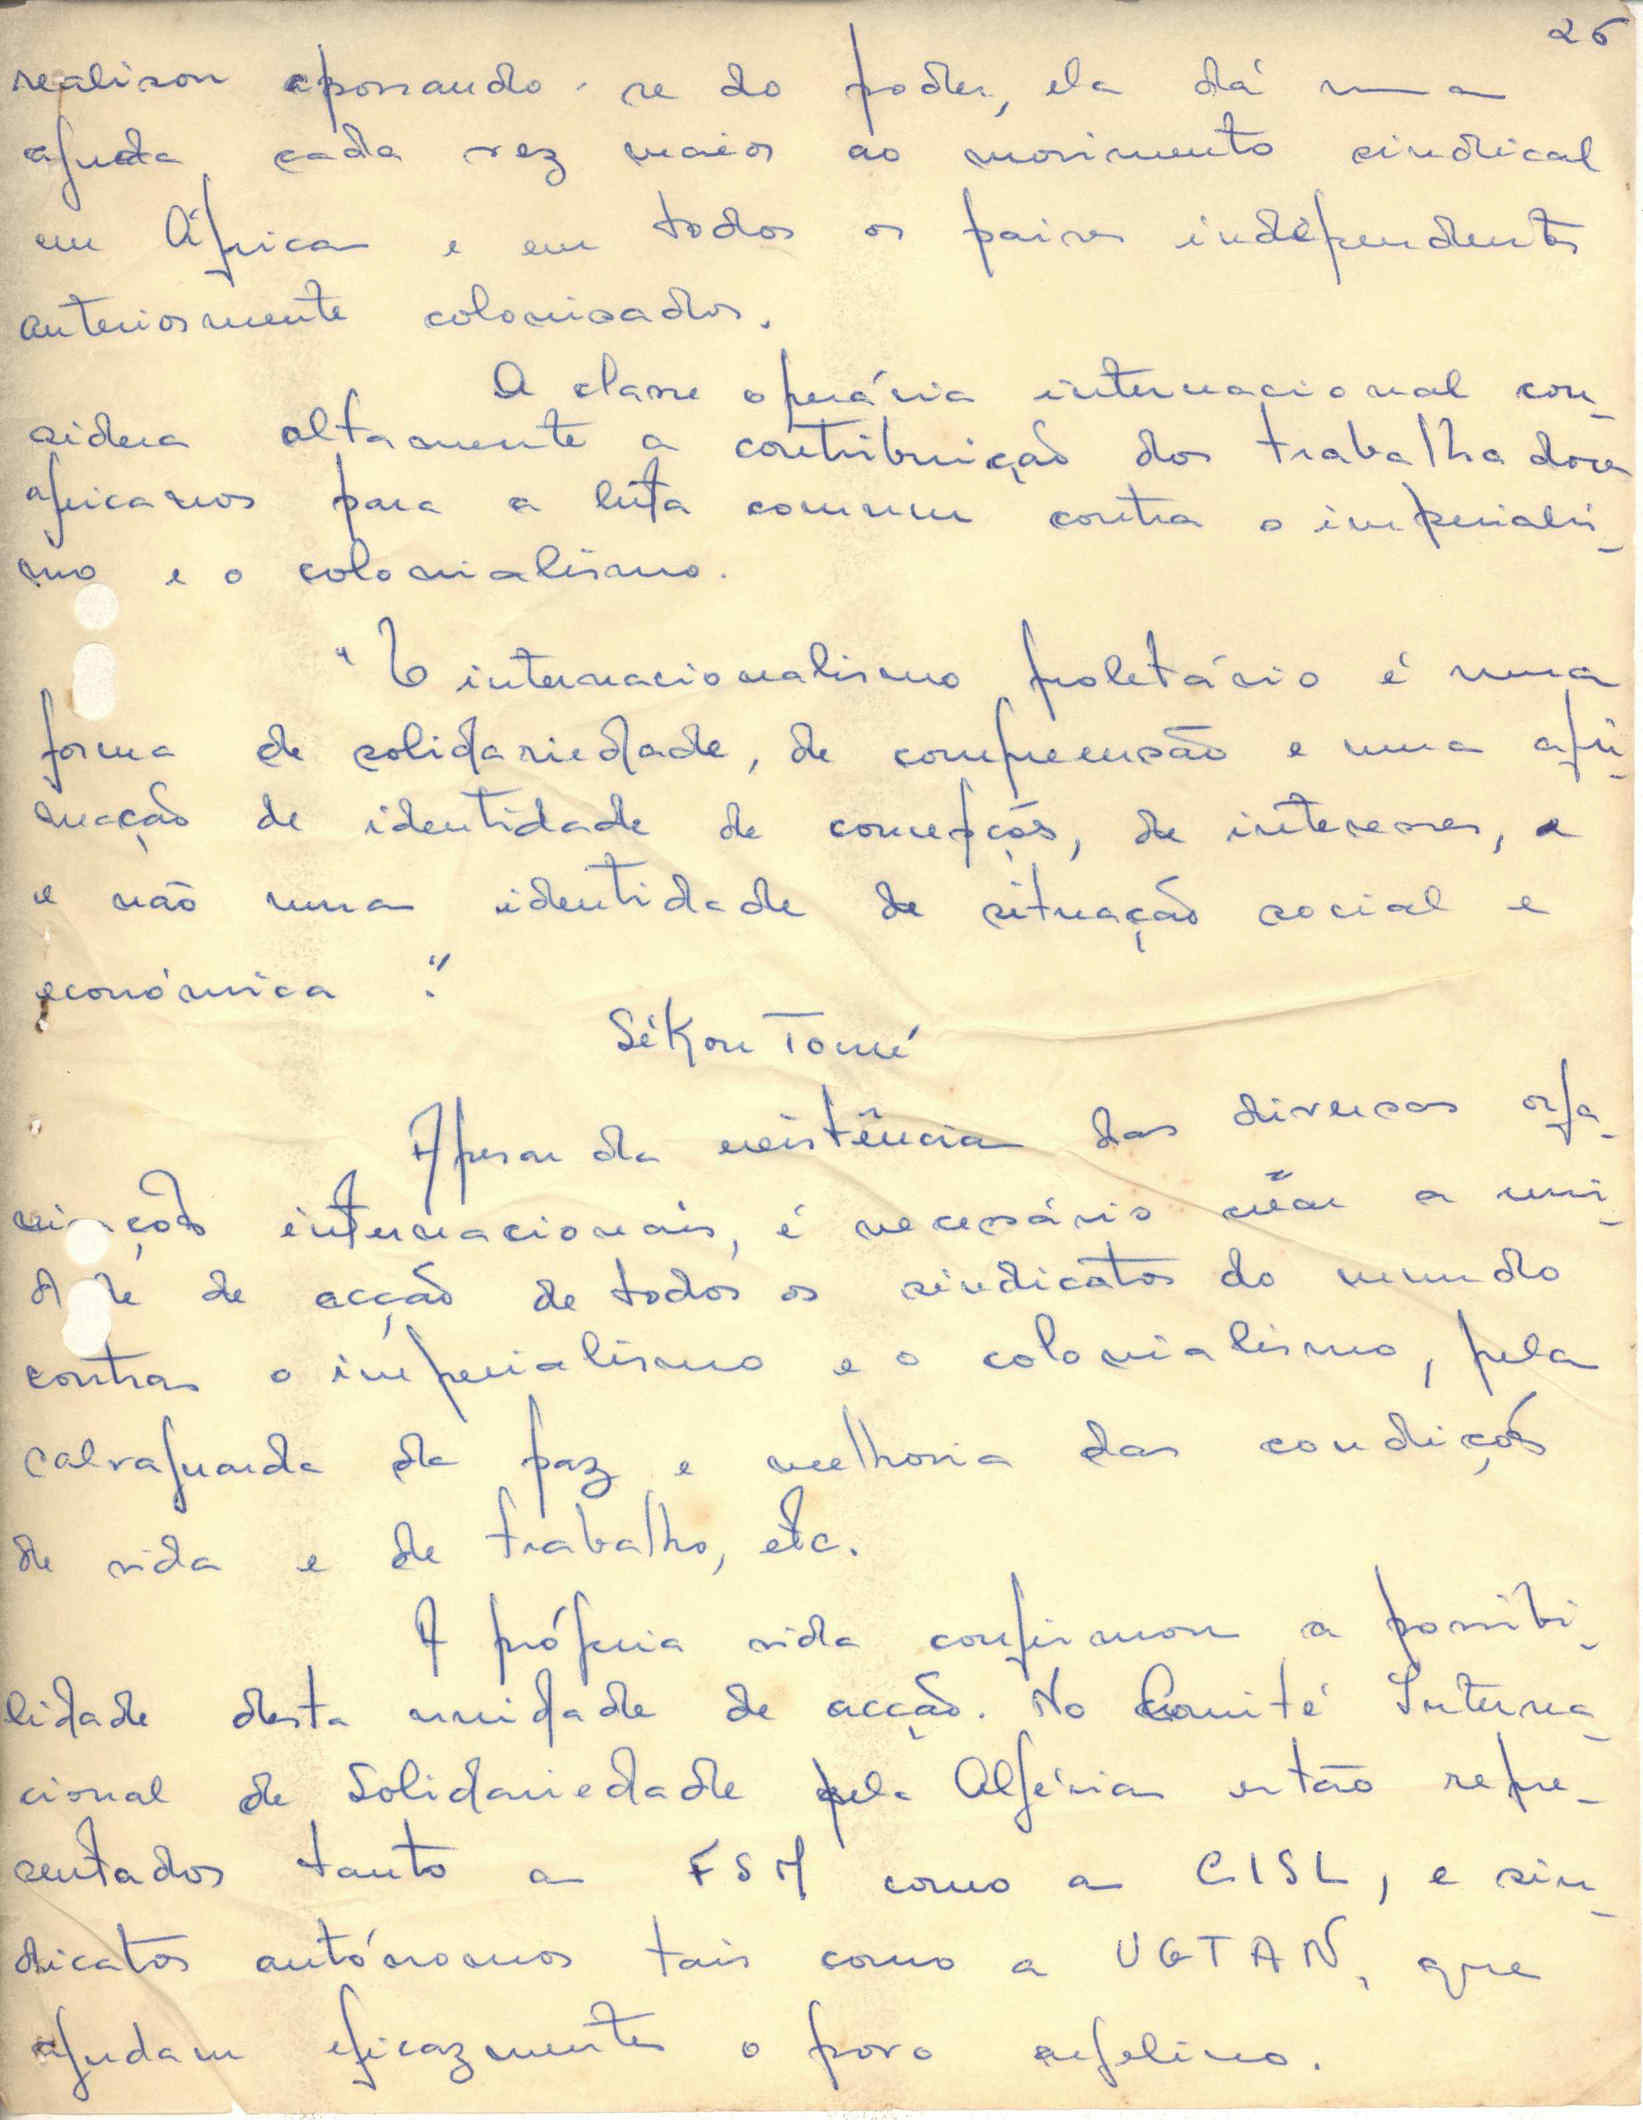 26
realizou apossando-se do poder, ela dá uma
ajuda cada vez maior ao movimento sindical
em África e em todos os paises independentes
anteriormente colonizados.
A classe operária internacional con-
sidera altamente a contribuição dos trabalhadores
africanos para a luta comum contra o imperialis-
mo e o colonialismo.
"O internacionalismo proletário é uma
forma de solidariedade, de compreensão e uma afir-
mação de identidade de concepções, de interesses, e
e não uma identidade de situação social e
económica."
Sékou Touré
Apesar da existência das diversas orga-
nizações internacionais, é necessário criar a uni-
dade de acção de todos os sindicatos do mundo
contra o imperialismo e o colonialismo, pela
salvaguarda da paz e melhoria das condições
de vida e de trabalho, etc.
A própria vida confirmou a possibi-
lidade desta unidade de acção. No Comité Interna-
cional de Solidariedade pela Algéria estão repre-
sentados tanto a FSM como a CISL, e sin-
dicatos autónomos tais como a UGTAN, que
ajudam eficazmente o povo argelino.